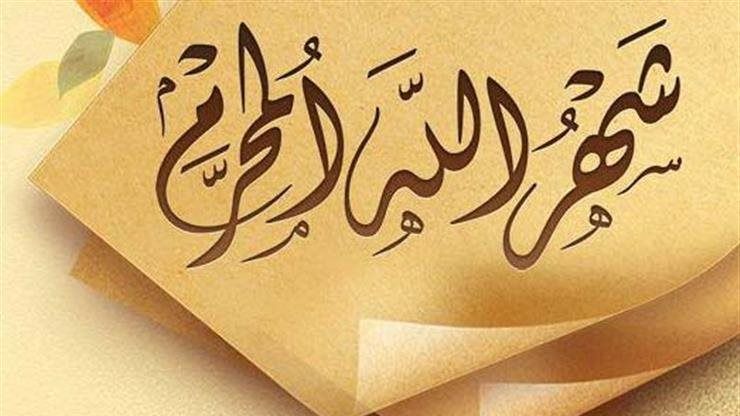 شهر الله المحرم